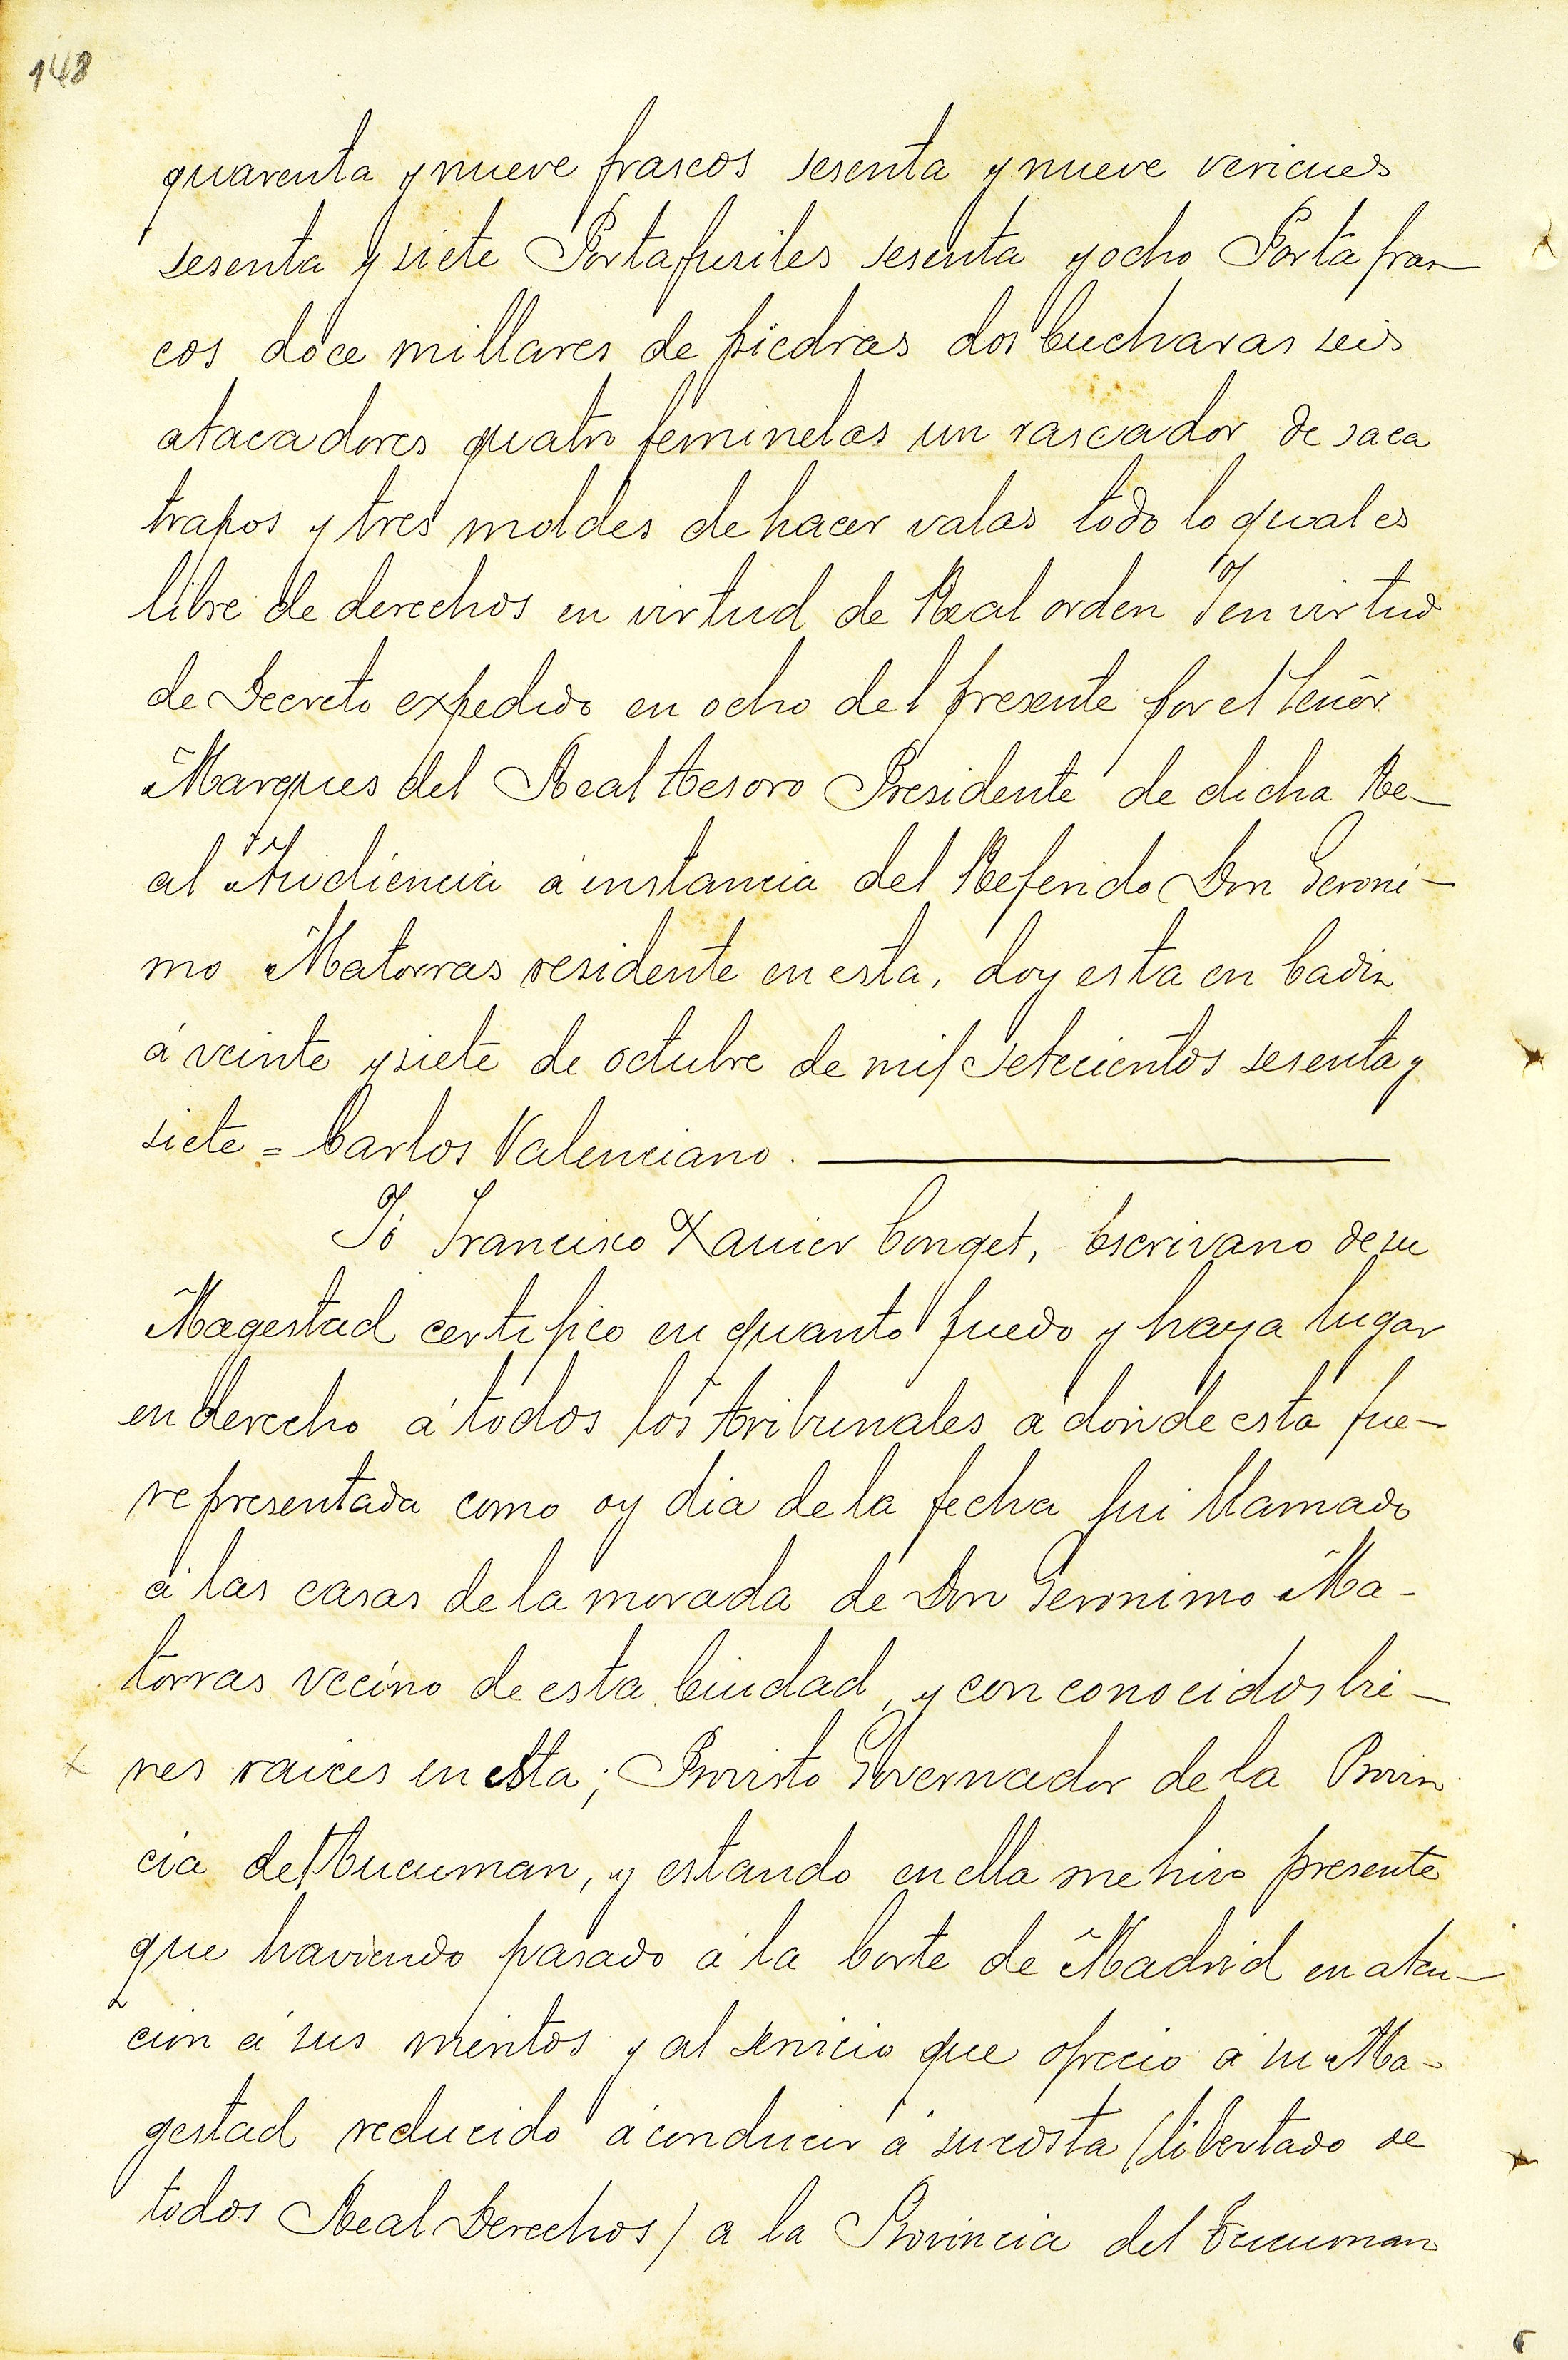 148
quarenta y nueve frascos sesenta y nueve vericues
sesenta y siete Portafusiles sesenta y ocho Porta fras
cos doce millares de piedras dos Cucharas seis
atacadores quatro feminelas un rascador de saca
trapos y tres moldes de hacer valas todo lo qual es
libre de derechos en virtud de Real orden Y en virtud
de Decreto expedido en ocho del presente por el Señor
Marques del Real tesoro Presidente de dicha Re-
al Audiencia á instancia del Referido Don Geroni-
mo Matorras residente en esta, doy esta en Cadiz
á veinte y siete de octubre de mil setecientos sesenta y
siete = Carlos Valenciano.
Yó Francisco Xavier Conget, Escrivano de su
Magestad certifico en quanto puedo y haya lugar
en derecho á todos los tribunales a donde esta fue-
representada como oy dia de la fecha fui llamado
á las casas de la morada de Don Geronimo Ma-
torras vecino de esta Ciudad, y con conocidos bie-
nes raices en esta; Provisto Governador de la Provin
cia del Tucuman, y estando en ella me hizo presente
que haviendo pasado á la Corte de Madrid en aten-
cion á sus meritos y al servicio que ofrecio á su Ma-
gestad reducido á conducir á su costa (libertado de
todos Real Derechos) a la Provincia del Tucuman